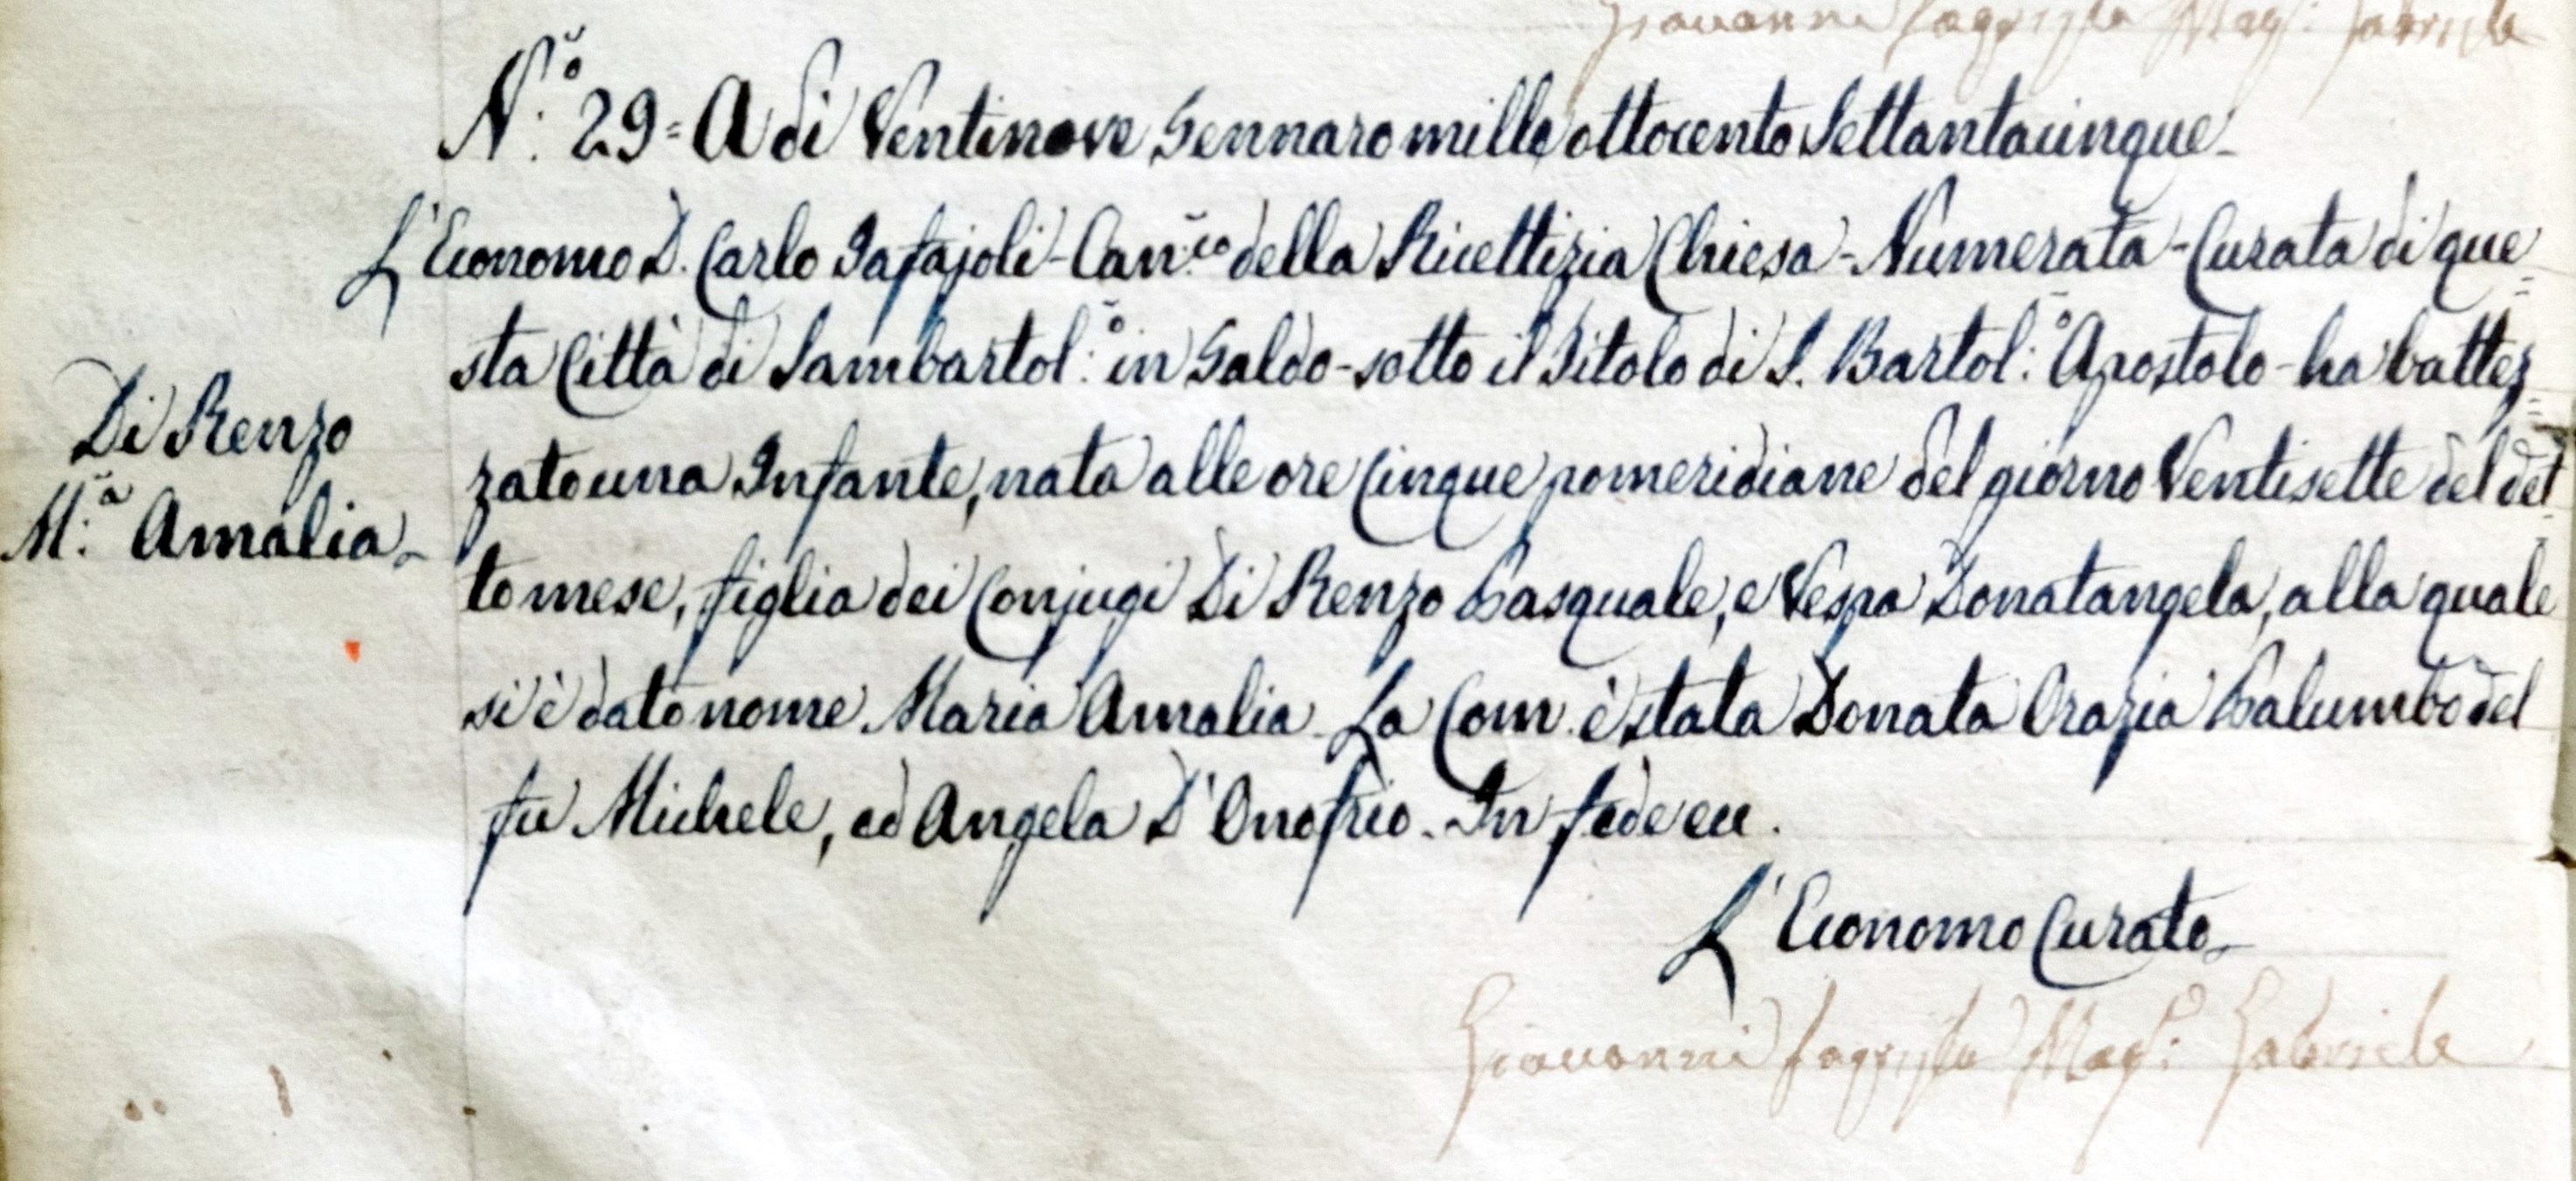 Giovanni Mags: Gabriele
N.º 29 = A di Ventinove Gennaro mille ottocento Settantacinque -
L'Economo D. Carlo Jafajoli - Can.co della Ricettizia Chiesa - Numerata - Curata di que=
sta Città di Sambartol:º in Galdo - sotto il Titolo di S. Bartol:º Apostolo - ha battez=
Di Renzo
M:ª Amalia -
zato una Infante, nata alle ore Cinque pomeridiane del giorno Ventisette del det=
to mese, figlia dei Conjugi Di Renzo Pasquale, e Vespa Donatangela, alla quale
si è dato nome Maria Amalia - La Com. è stata Donata Orazia Palumbo del
fu Michele, ed Angela D'Onofrio - In fede ecc.
L'Economo Curato -
Giovanni Mags: Gabriele